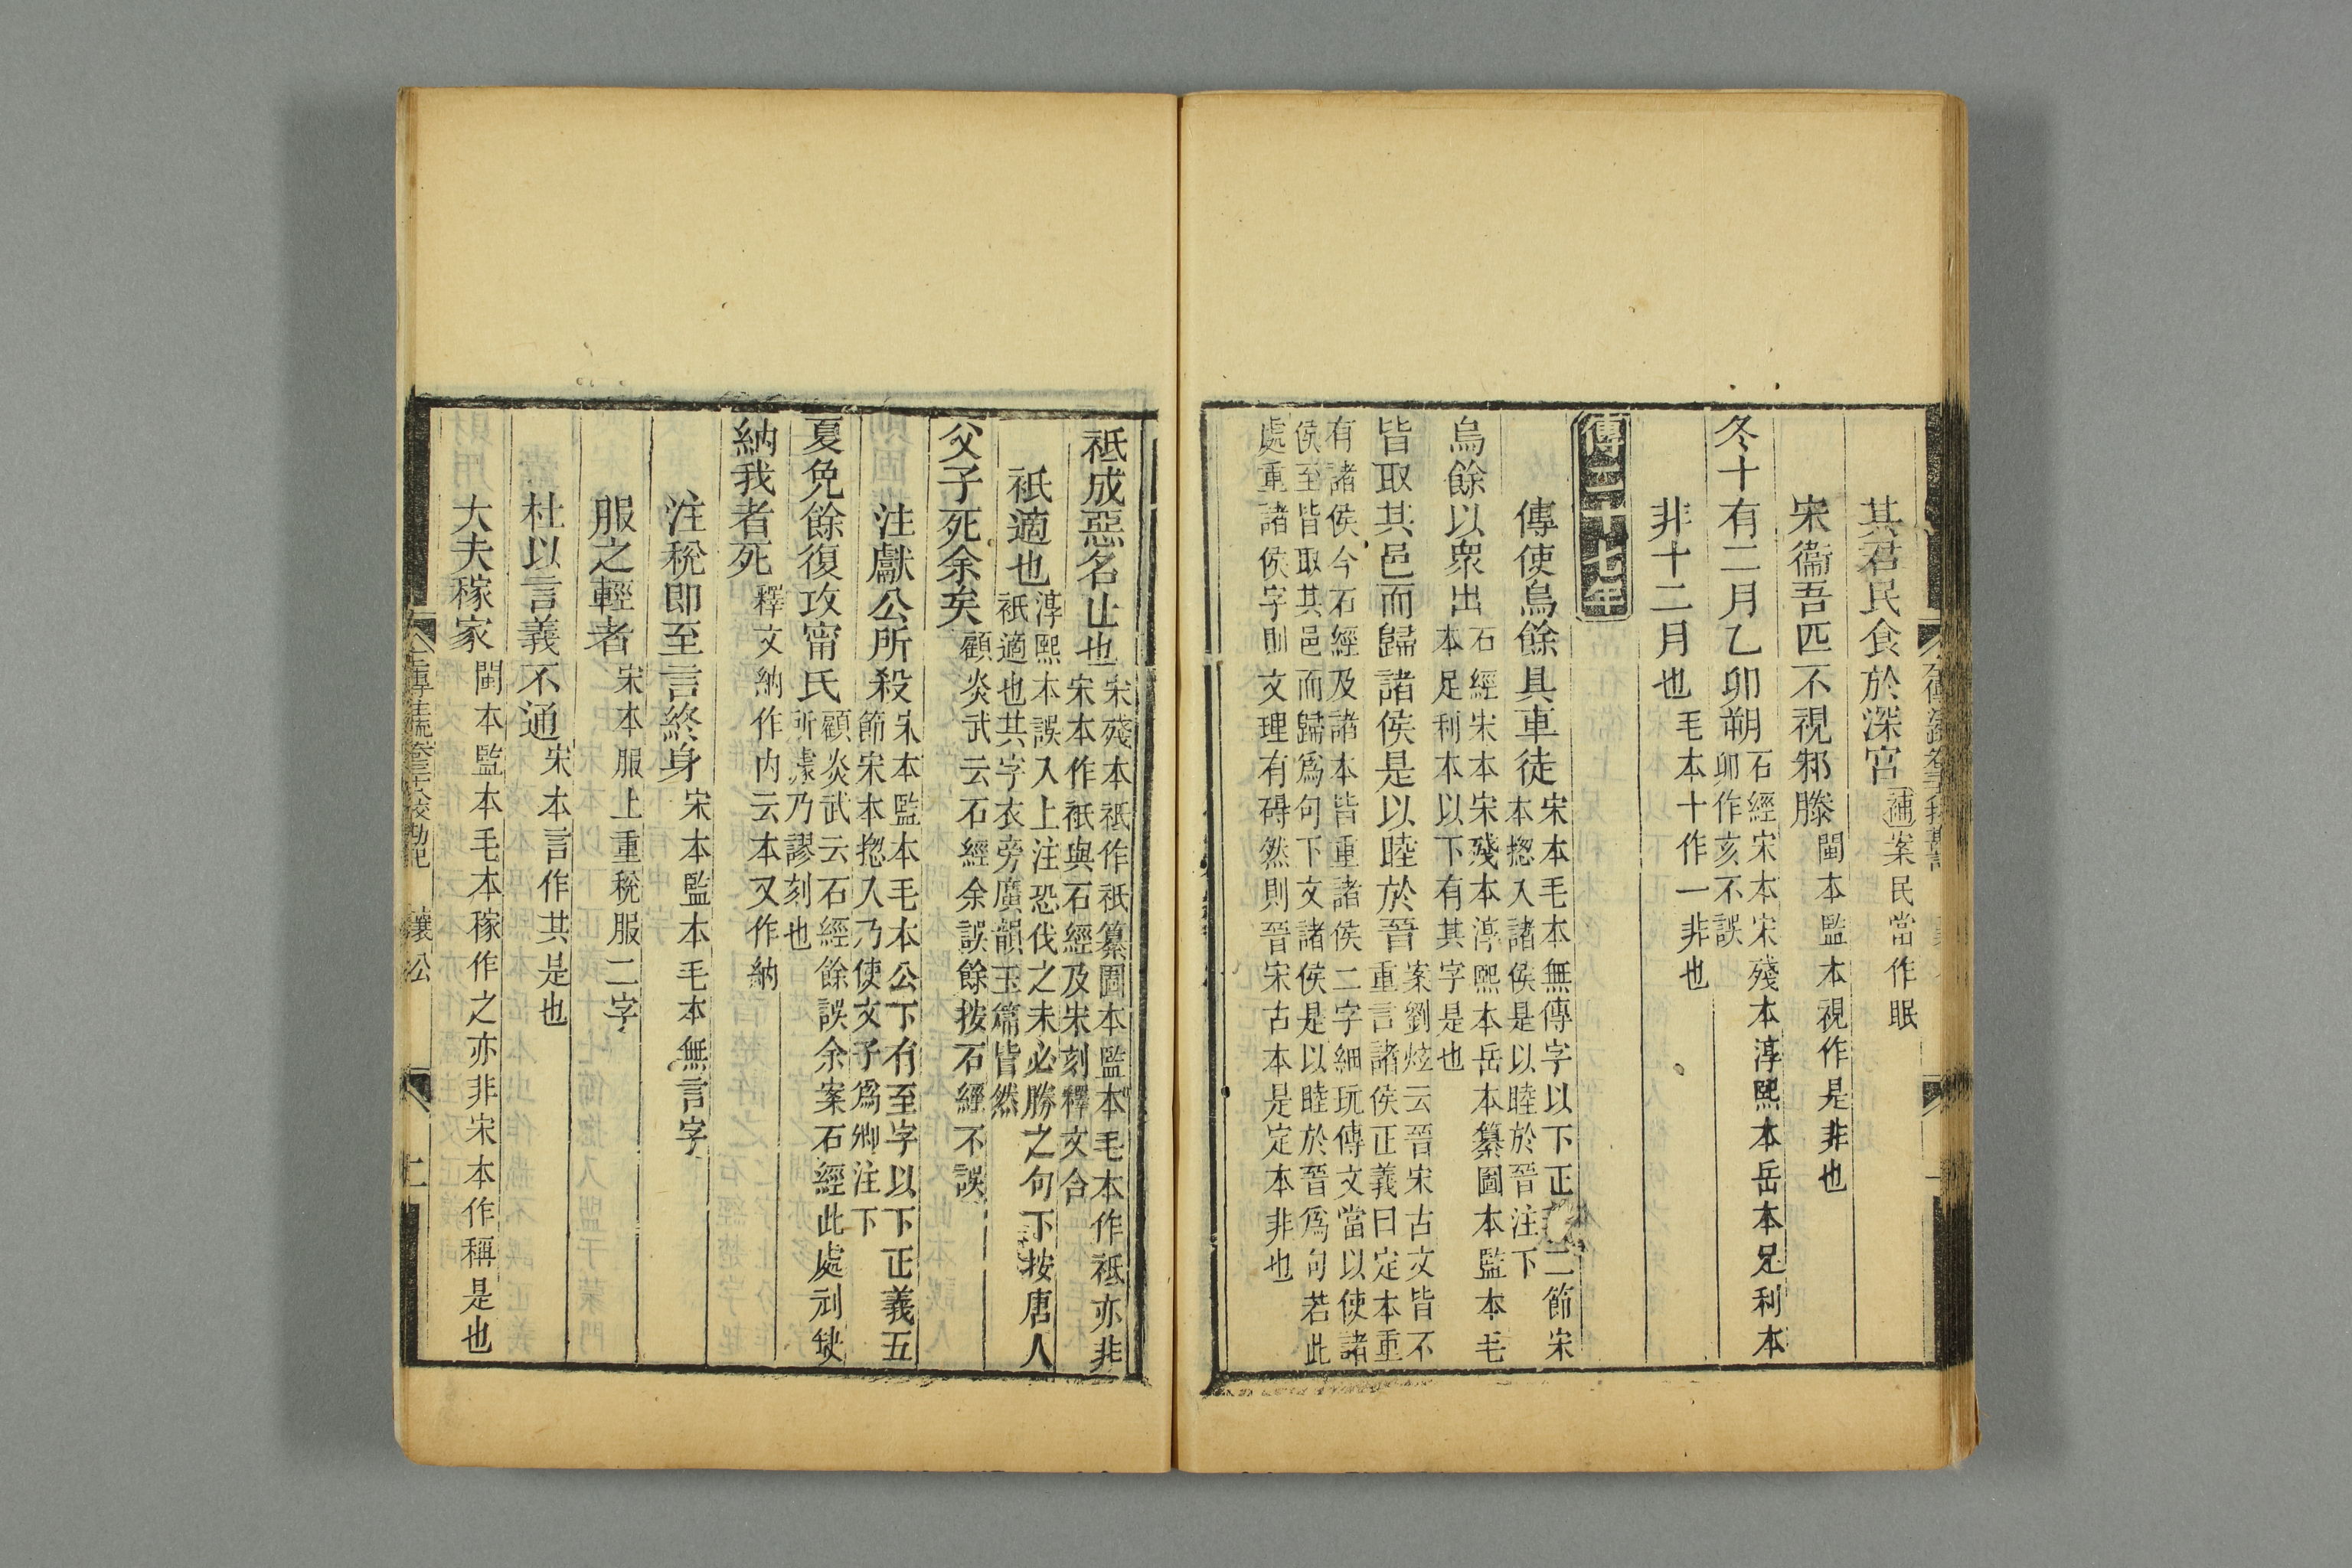 其君民食於深宮補案民當作眠
宋衞吾匹不視邾滕閩本監本視作是非也
冬十有二月乙卯朔石經宋本宋殘本淳熙本岳本足利本
卯作亥不誤
非十二月也毛本十作一非也
傳二十七年
傳使烏餘具車徒宋本毛本無傳字以下正義二節宋
本揔入諸侯是以睦於晉注下
烏餘以衆出石經宋本宋殘本淳熙本岳本纂圖本監本毛
本足利本以下有其字是也
皆取其邑而歸諸侯是以睦於晉案劉炫云晉宋古文皆不
重言諸侯正義曰定本重
有諸侯今石經及諸本皆重諸侯二字細玩傳文當以使諸
侯至皆取其邑而歸爲句下文諸侯是以睦於晉爲句若此
處重諸侯字則文理有碍然則晉宋古本是定本非也
祗成惡名止也宋殘本祗作祇纂圖本監本毛本作祗亦非
宋本作衹與石經及宋刻釋文合
衹適也淳熙本誤入上注恐伐之未必勝之句下按唐人
衹適也其字衣旁廣韻玉篇皆然
父子死余矣顧炎武云石經余誤餘按石經不誤
注獻公所殺宋本監本毛本公下有至字以下正義五
節宋本揔入乃使文子爲卿注下
夏免餘復攻甯氏顧炎武云石經餘誤余案石經此處刓缺
所據乃謬刻也
納我者死釋文納作内云本又作納
注稅即至言終身宋本監本毛本無言字
服之輕者宋本服上重稅服二字
杜以言義不通宋本言作其是也
大夫稼家閩本監本毛本稼作之亦非宋本作稱是也
左傳注疏卷三十八校勘記 襄公 二